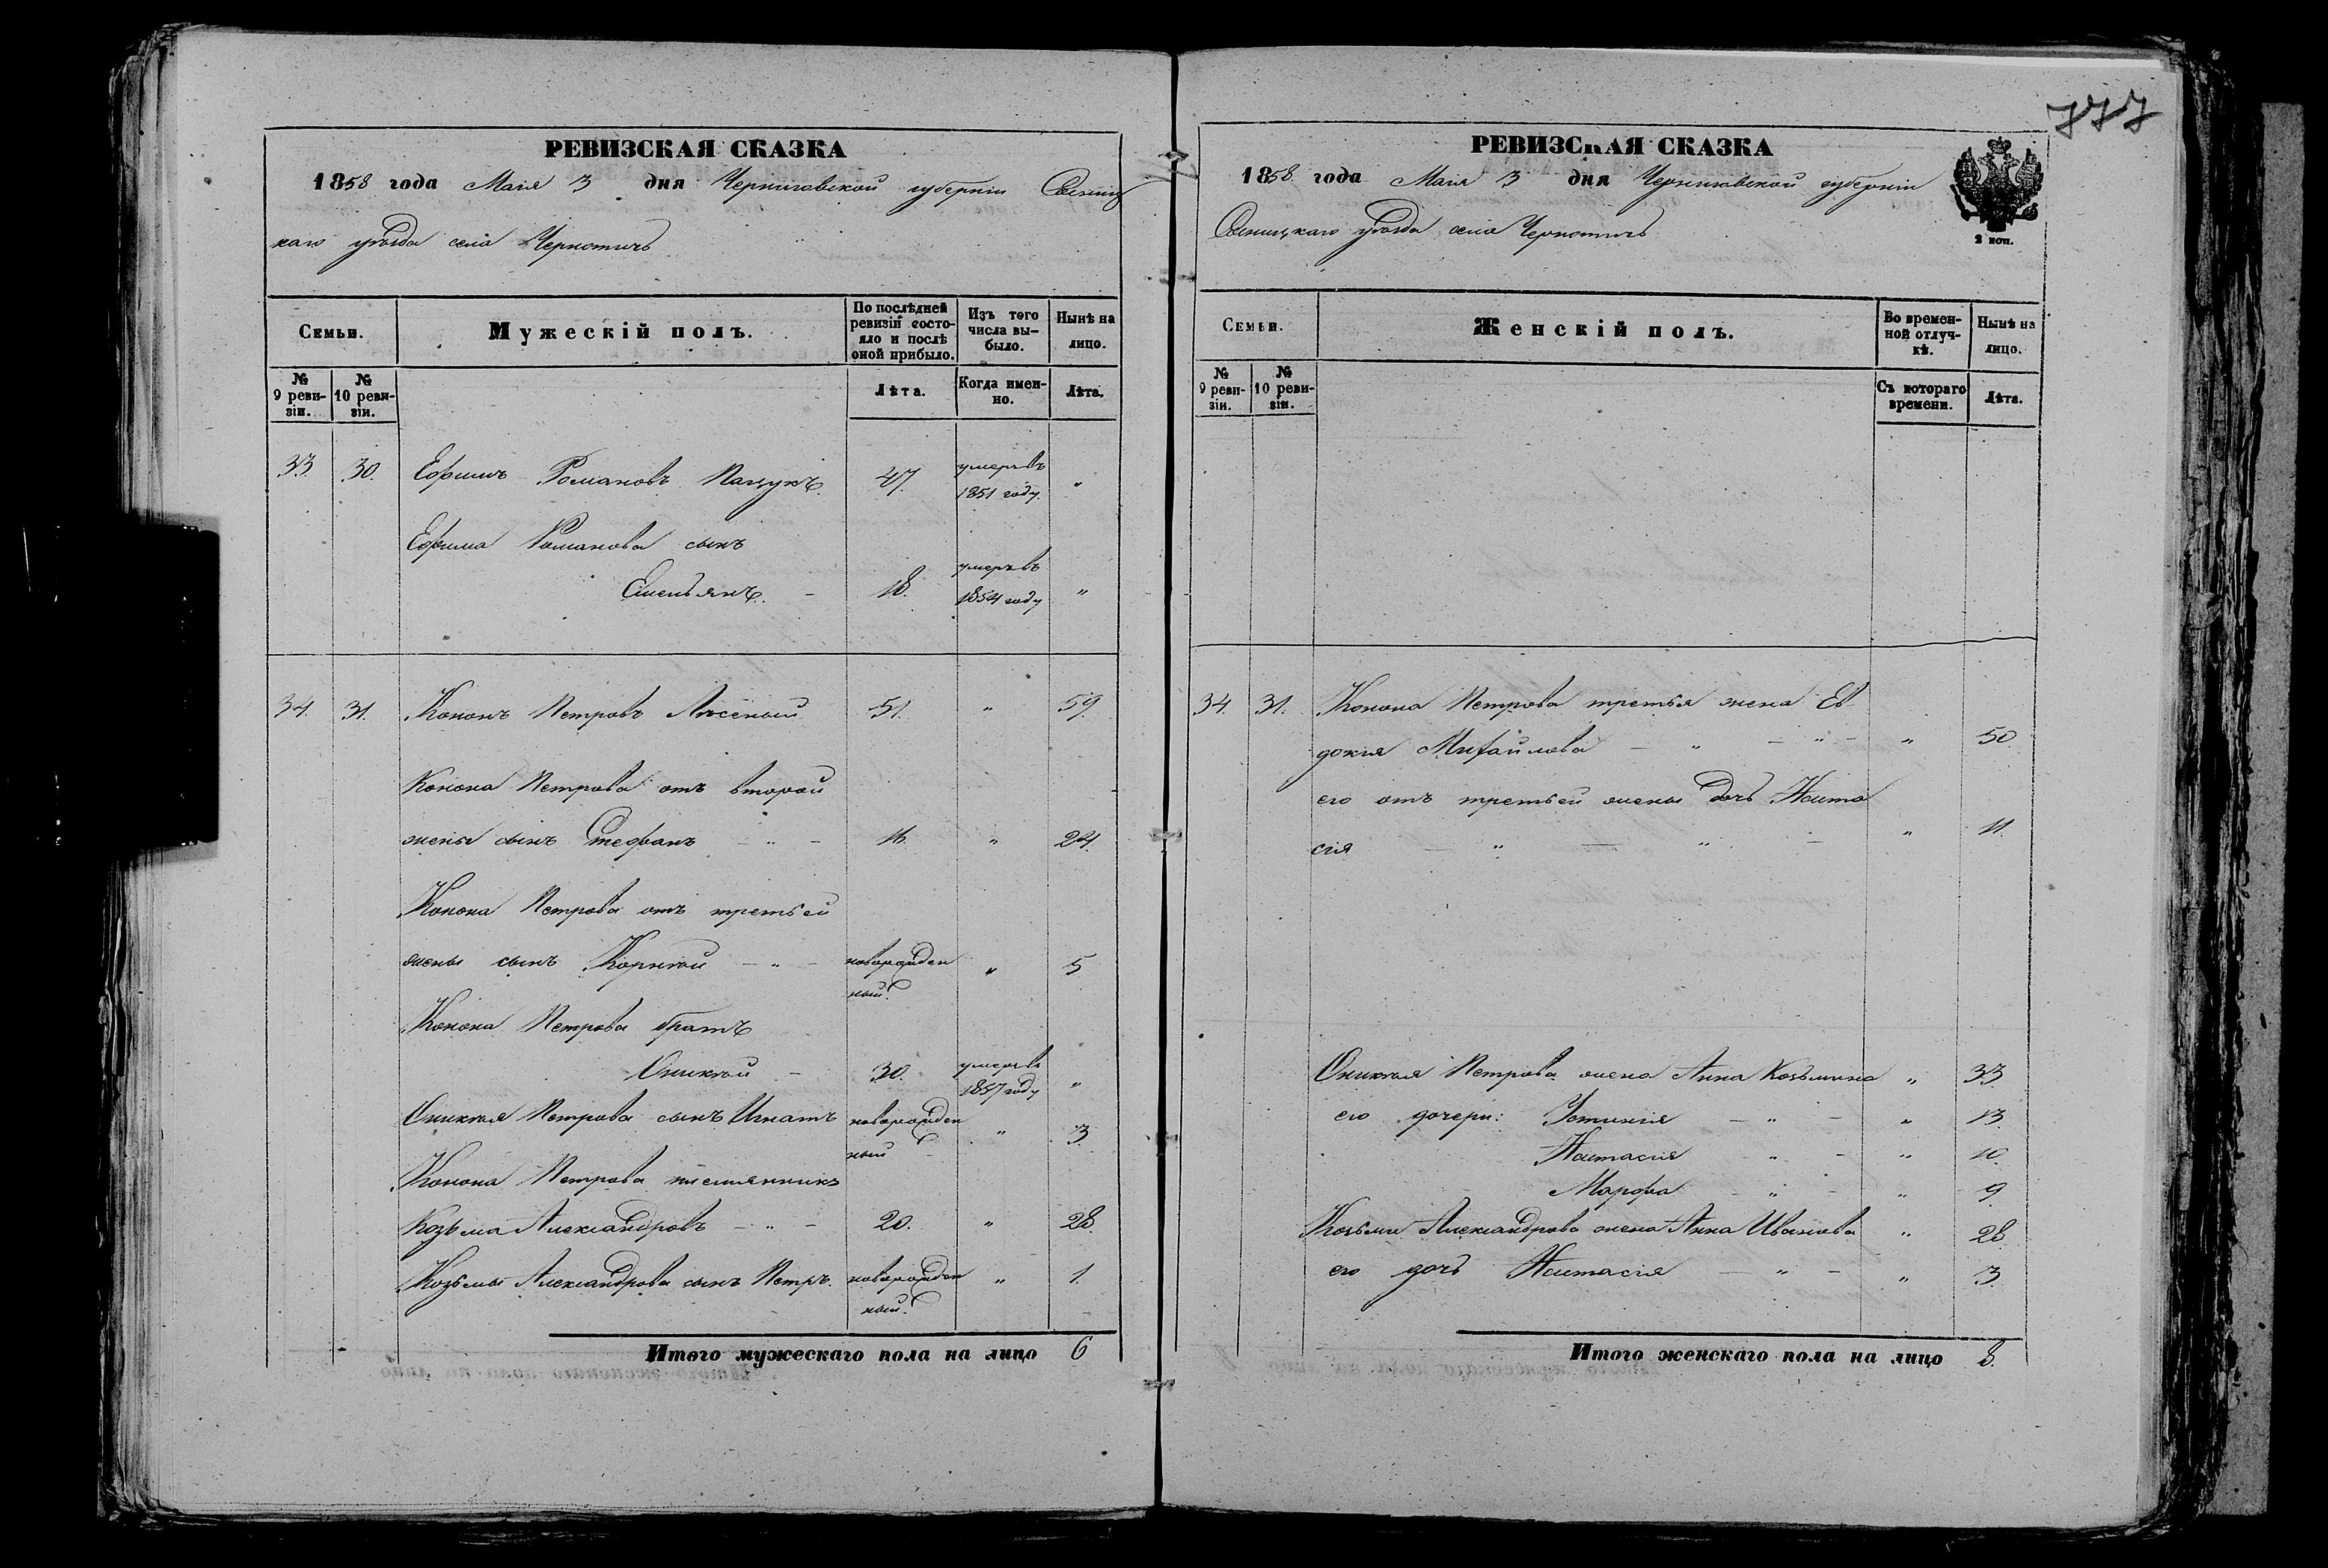 777
РЕВИЗСКАЯ СКАЗКА
1858 года Маія 3 дня Черниговской губерніи Сосниц
каго уѣзда села Чернотичъ
Семьи.
Мужескій полъ.
По послѣдней ревизіи состояло и послѣ оной прибыло.
Изъ того числа выбыло.
Нынѣ на лицо.
№ 9 ревизіи.
№ 10 ревизіи.
Лѣта.
Когда именно.
Лѣта.
33. 30. Ефимъ Романовъ Пацукъ. 47. умеръ въ 1851 году. "
Ефима Романова сынъ
Емельянъ. - 18. умеръ въ 1854 году "
34. 31. Кононъ Петровъ Лысенький 51. " 59.
Конона Петрова отъ второй
жены сынъ Стефанъ - " - 16. " 24.
Конона Петрова отъ третьей
жены сынъ Корнѣй - " - новорожден " 5
ный.
Конона Петрова братъ
Оникѣй - 30. умеръ въ 1857 году "
Оникѣя Петрова сынъ Игнатъ новорожден " 3.
ный
Конона Петрова племянникъ
Козьма Александровъ - " - 20. " 28.
Козьмы Александрова сынъ Петръ. новорожден " 1.
ный.
Итого мужескаго пола на лицо 6
РЕВИЗСКАЯ СКАЗКА
1858 года Маія 3 дня Черниговской губерніи
Сосницкаго уѣзда села Чернотичъ
2 коп.
Семьи.
Женскій полъ.
Во временной отлучкѣ.
Нынѣ на лицо.
№ 9 ревизіи.
№ 10 ревизіи.
Съ котораго времени.
Лѣта.
34. 31. Конона Петрова третья жена Ев
докия Михайлова - " - " - " 50.
его отъ третьей жены дочь Наста
сія - " - " - " 11.
Оникѣя Петрова жена Анна Козьмина " 33
его дочери: Устинія - " - " 13.
Настасія - " - " 10.
Марфа - " - " 9
Козьмы Александрова жена Анна Иванова " 28.
его дочь Настасія - " - " 3.
Итого женскаго пола на лицо 8.